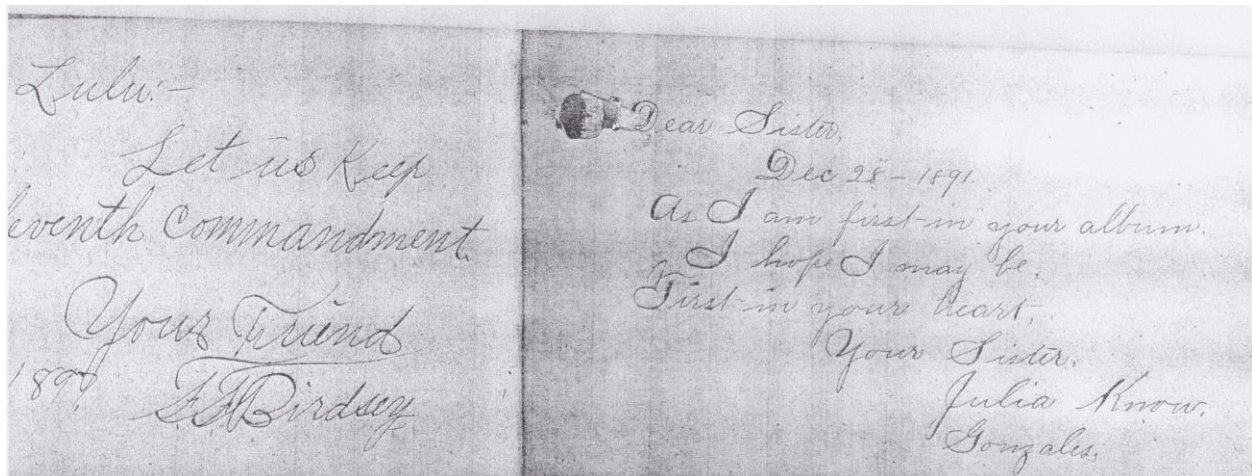 Lulu:-
Let us Keep
eventh Commandment.
Your Friend
189
F.F. Birdsey
Dear Sister,
Dec 28 - 1891.
As I am first in your album.
I hope I may be,
First in your heart,
Your Sister.
Julia Know.
Gonzales,